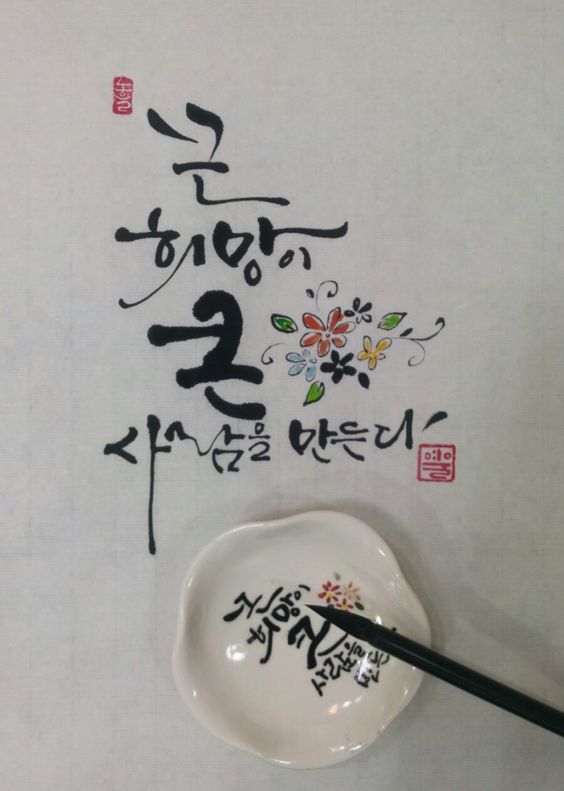 큰
희망이
큰
사람을 만든다
큰
희망이
큰
사람을